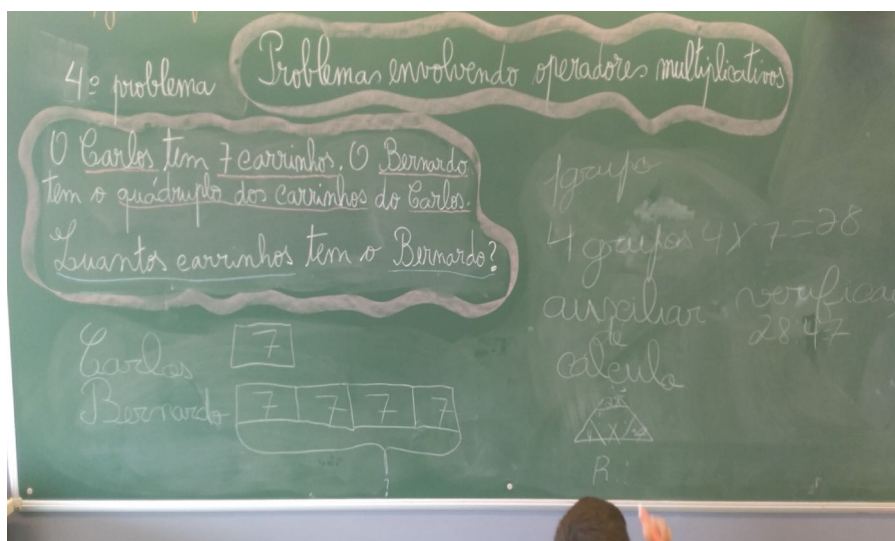 Problemas envolvendo operadores multiplicativos
4º problema
O Carlos tem 7 carrinhos. O Bernardo
tem o quádruplo dos carrinhos do Carlos.
Quantos carrinhos tem o Bernardo?
Carlos 7
Bernardo 7 7 7 7
?
1 grupo
4 grupos 4 x 7 = 28
auxiliar
de
cálculo
R.: